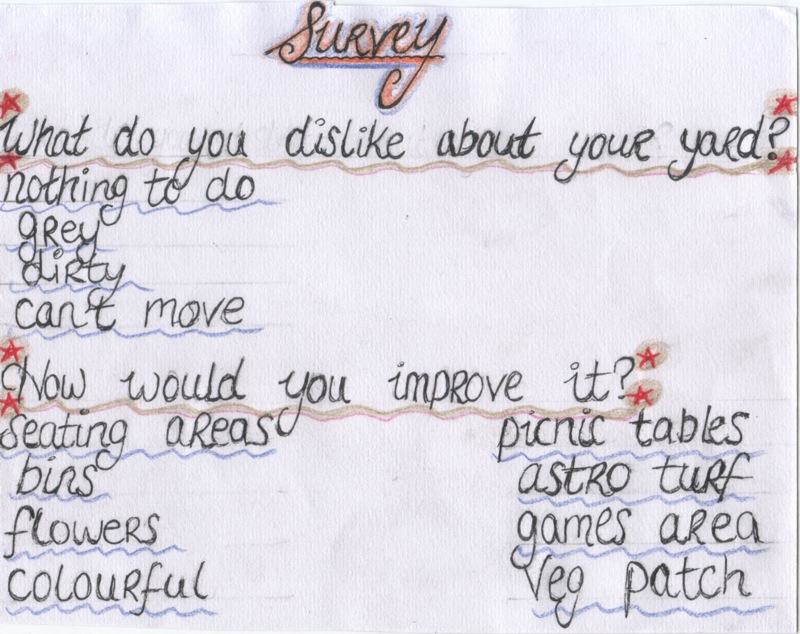 Survey
What do you dislike about your yard?
nothing to do
grey
dirty
can't move
How would you improve it?
seating areas
bins
flowers
colourful
picnic tables
astro turf
games area
veg patch